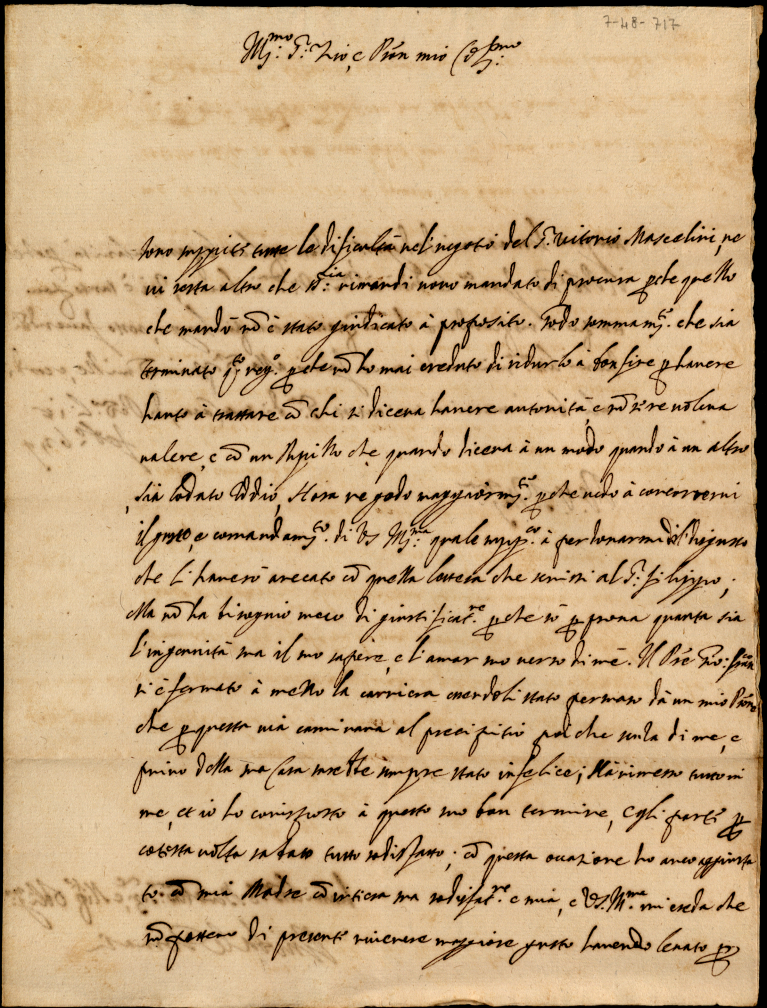 7-48-717
Mj:mo Sr Zio, e Pron mio
sono suppite tutte le dificoltà nel negotio del Sr Vitorio Mascelini, ne
vi resta altro che rimandi novo mandato di procura pche quello
che mandò nō è stato giudicato à proposito. Godo sommamte che sia
terminato pche nō ho mai creduto di ridurlo à bon fine p havere
hauto à trattare cō chi si diceva havere autorità, e nō se ne voleva
valere, e cō un Pupillo che quando diceva à un modo quando à un altro
sia lodato Iddio, Hora ne godo pche vedo à concorrervi
il gusto, e comandamto di VS quale à perdonarmi il disgusto
che li haverò arecato cō quella lettera che scrissi al Sr Filippo;
Ma nō ha bisognio meco di giustificatne pche sò p prova quanta sia
l'ingenuità sua il suo sapere, e l'amor suo verso di mè. Il Pre Gio:
si è fermato à mezzo la carriera essendoli stato permaso dà un mio Prone
che p questa via caminava al precipitio poi che senza di me, e
privo della sua Casa sarebbe sempre stato infelice; Hà rimesso tutto in
me, et io ho corrisposto à questo suo bon termine, egli parte p
cotesta volta sabato tutto sodisfatto; cō questa occazione ho anco aggiusta
to cō mia Madre cō intiera sua sodisfatne e mia, e VS. mi creda che
nō potevo di presente ricevere maggiore gusto havendo levato p